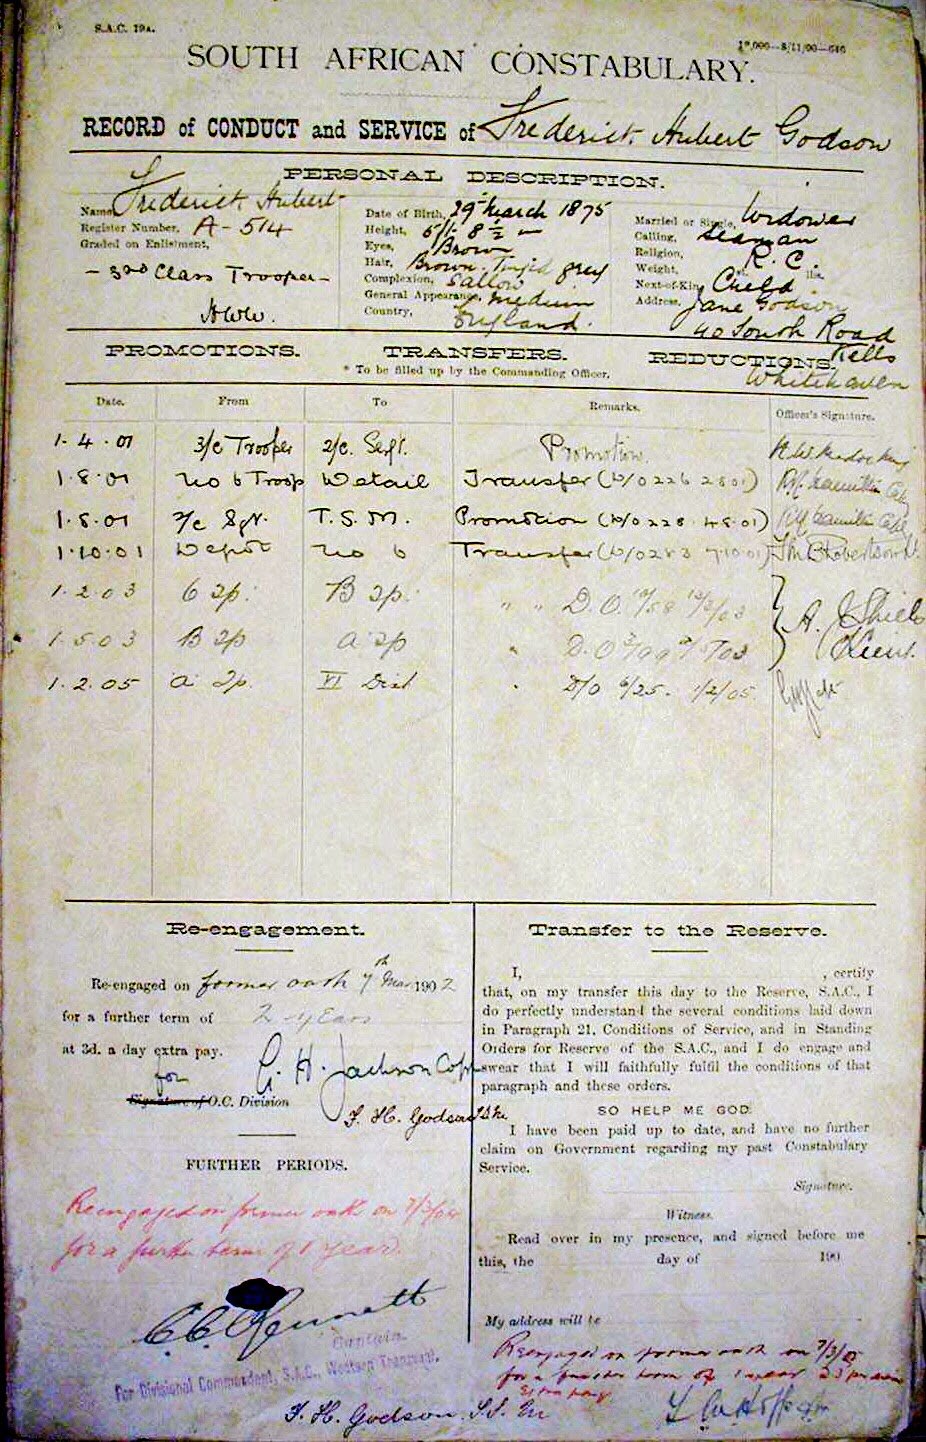 S.A.C. 19A.
SOUTH AFRICAN CONSTABULARY.
RECORD of CONDUCT and SERVICE of Frederick Hubert Godson
PERSONAL DESCRIPTION.
Name Frederick Hubert
Register Number, A - 514
Graded on Enlistment,
- 3rd Class Trooper -
Date of Birth, 29 March 1875
Height, 5ft 8½
Eyes, Brown
Hair, Brown Tinged grey
Complexion, Sallow
General Appearance, Medium
Country, England.
Married or Single, Widower
Calling, Seaman
Religion, R. C.
Weight, lbs.
Next-of-Kin, Child
Address, Jane Godson
40 South Road
Kells
Whitehaven
PROMOTIONS. TRANSFERS. REDUCTIONS.
* To be filled up by the Commanding Officer.
Date. From To Remarks. Officer's Signature.
1.4.01 3/c Trooper 2/c. Sergt. Promotion.
1.8.01 No 6 Troop Detail Transfer (D/O 226 2801) Hamilton Capt
1.8.01 2/c Sgt. T.S.M. Promotion (D/O 228 4801) Hamilton Capt
1.10.01 Depot No 6 Transfer (D/O 283 71001) Robertson
1.2.03 6 Tp. B Tp. " " D.O.
1.5.03 B Tp A Tp " D.O. A. J. Shiels Lieut.
1.2.05 A Tp. VI Dist " D/O 6/25. 1/2/05
Re-engagement.
Re-engaged on former oath 7th Mar 1902
for a further term of 2 years
at 3d. a day extra pay.
for G. H. Jackson Capt
Signature of O.C. Division
F. H. Godson
FURTHER PERIODS.
Reengaged on former oath on 7/3/04
for a further term of 1 year.
C. C. Bennett
Captain.
For Divisional Commandant, S.A.C., Western Transvaal.
F. H. Godson
Transfer to the Reserve.
I, , certify
that, on my transfer this day to the Reserve, S.A.C., I
do perfectly understand the several conditions laid down
in Paragraph 21, Conditions of Service, and in Standing
Orders for Reserve of the S.A.C., and I do engage and
swear that I will faithfully fulfil the conditions of that
paragraph and these orders.
SO HELP ME GOD.
I have been paid up to date, and have no further
claim on Government regarding my past Constabulary
Service.
Signature.
Witness.
Read over in my presence, and signed before me
this, the day of 190
My address will be
Reengaged on former oath on 7/3/05
for a further term of 1 year
Extra pay